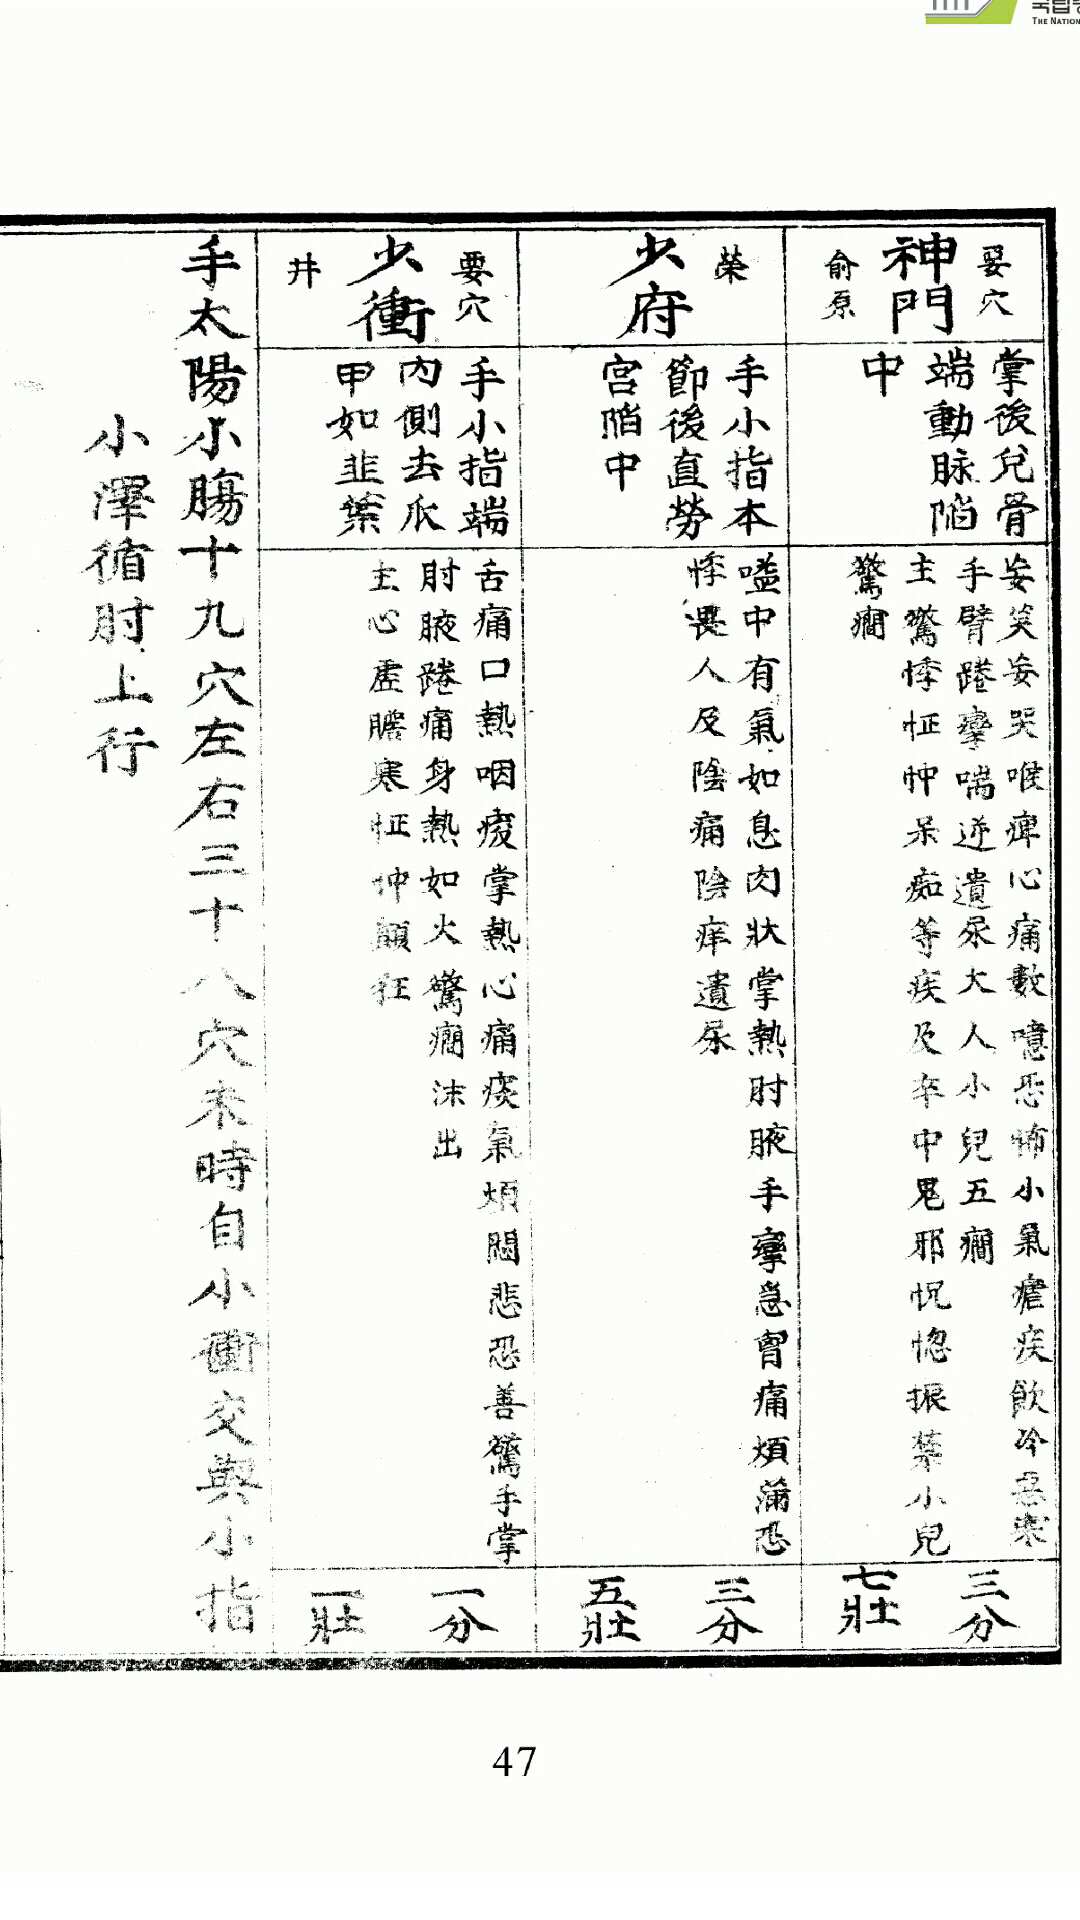 국립중
THE NATION
要穴
神門
俞原
掌後兌骨
端動脉陷
中
妄笑妄哭喉痺心痛數噫恐怖小氣瘧疾飮冷惡寒
手臂踡攣喘逆遺尿大人小兒五癎
主驚悸怔忡呆痴等疾及卒中鬼邪怳惚振禁小兒
驚癎
三分
七壯
榮
少府
手小指本
節後直勞
宮陷中
嗌中有氣如息肉狀掌熱肘腋手攣急胷痛煩滿恐
悸畏人及陰痛陰痒遺尿
三分
五壯
要穴
少衝
井
手小指端
內側去爪
甲如韭葉
舌痛口熱咽痠掌熱心痛痰氣煩悶悲恐善驚手掌
肘腋踡痛身熱如火驚癎沫出
主心虛膽寒怔忡顚狂
一分
一壯
手太陽小膓十九穴左右三十八穴未時自小衝交與小指
小澤循肘上行
47